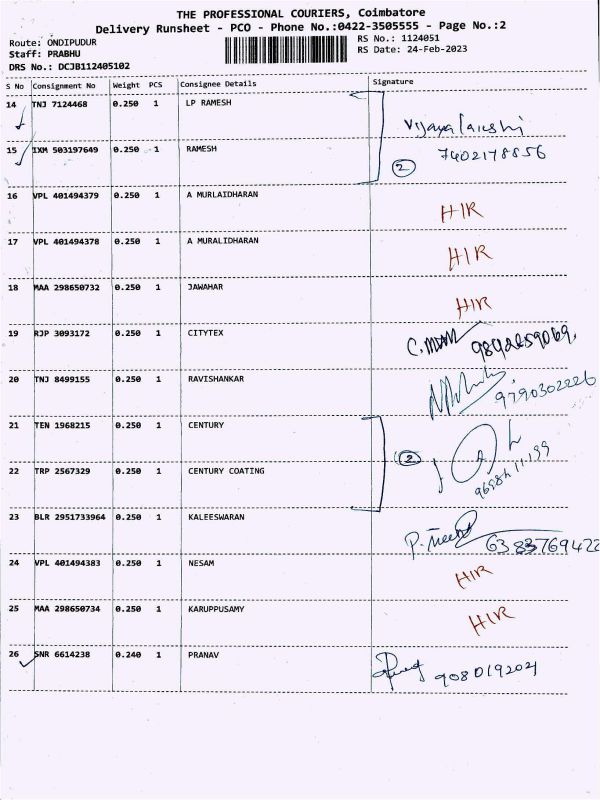 THE PROFESSIONAL COURIERS, Coimbatore
Delivery Runsheet - PCO - Phone No.:0422-3505555 - Page No.:2
Route: ONDIPUDUR
RS No.: 1124051
Staff: PRABHU
RS Date: 24-Feb-2023
DRS No.: DCJB112405102
S No Consignment No Weight PCS Consignee Details Signature
14 TNJ 7124468 0.250 1 LP RAMESH
Vijaya Lakshi
15 IXM 503197649 0.250 1 RAMESH 7402178856
2
16 VPL 401494379 0.250 1 A MURLAIDHARAN HIR
17 VPL 401494378 0.250 1 A MURALIDHARAN HIR
18 MAA 298650732 0.250 1 JAWAHAR HIR
19 RJP 3093172 0.250 1 CITYTEX 9842259069.
20 TNJ 8499155 0.250 1 RAVISHANKAR 9790302226
21 TEN 1968215 0.250 1 CENTURY
2
22 TRP 2567329 0.250 1 CENTURY COATING
23 BLR 2951733964 0.250 1 KALEESWARAN 6383769422
24 VPL 401494383 0.250 1 NESAM HIR
25 MAA 298650734 0.250 1 KARUPPUSAMY HIR
26 SNR 6614238 0.240 1 PRANAV 908019204